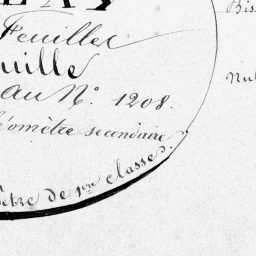 LAY
Feuilles
uille
au N.° 1208.
éomètre secondaire
ètre de 1ère classe.
Bis
Nul